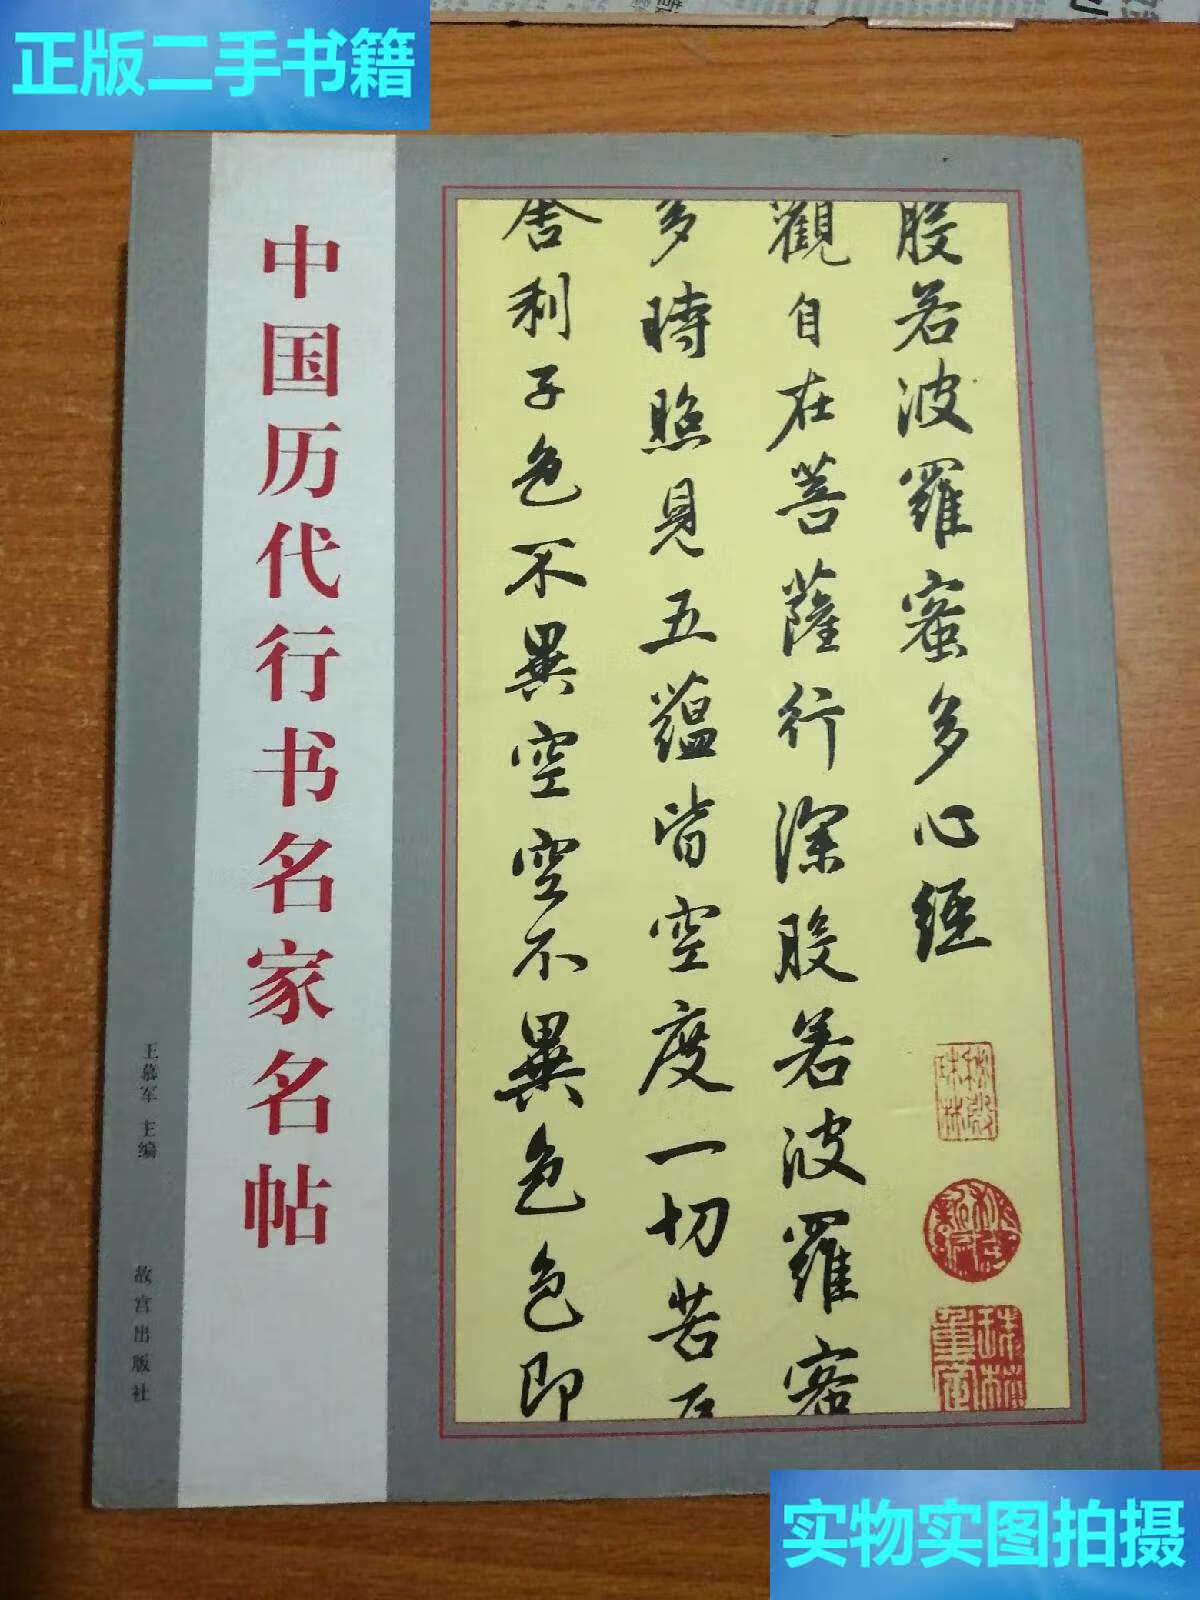 正版二手书籍
中国历代行书名家名帖
王慕军 主编
故宫出版社
般若波羅蜜多心經
觀自在菩薩行深般若波羅密
多時照見五蘊皆空度一切苦厄
舍利子色不異空空不異色色即
珠林
重定
实物实图拍摄